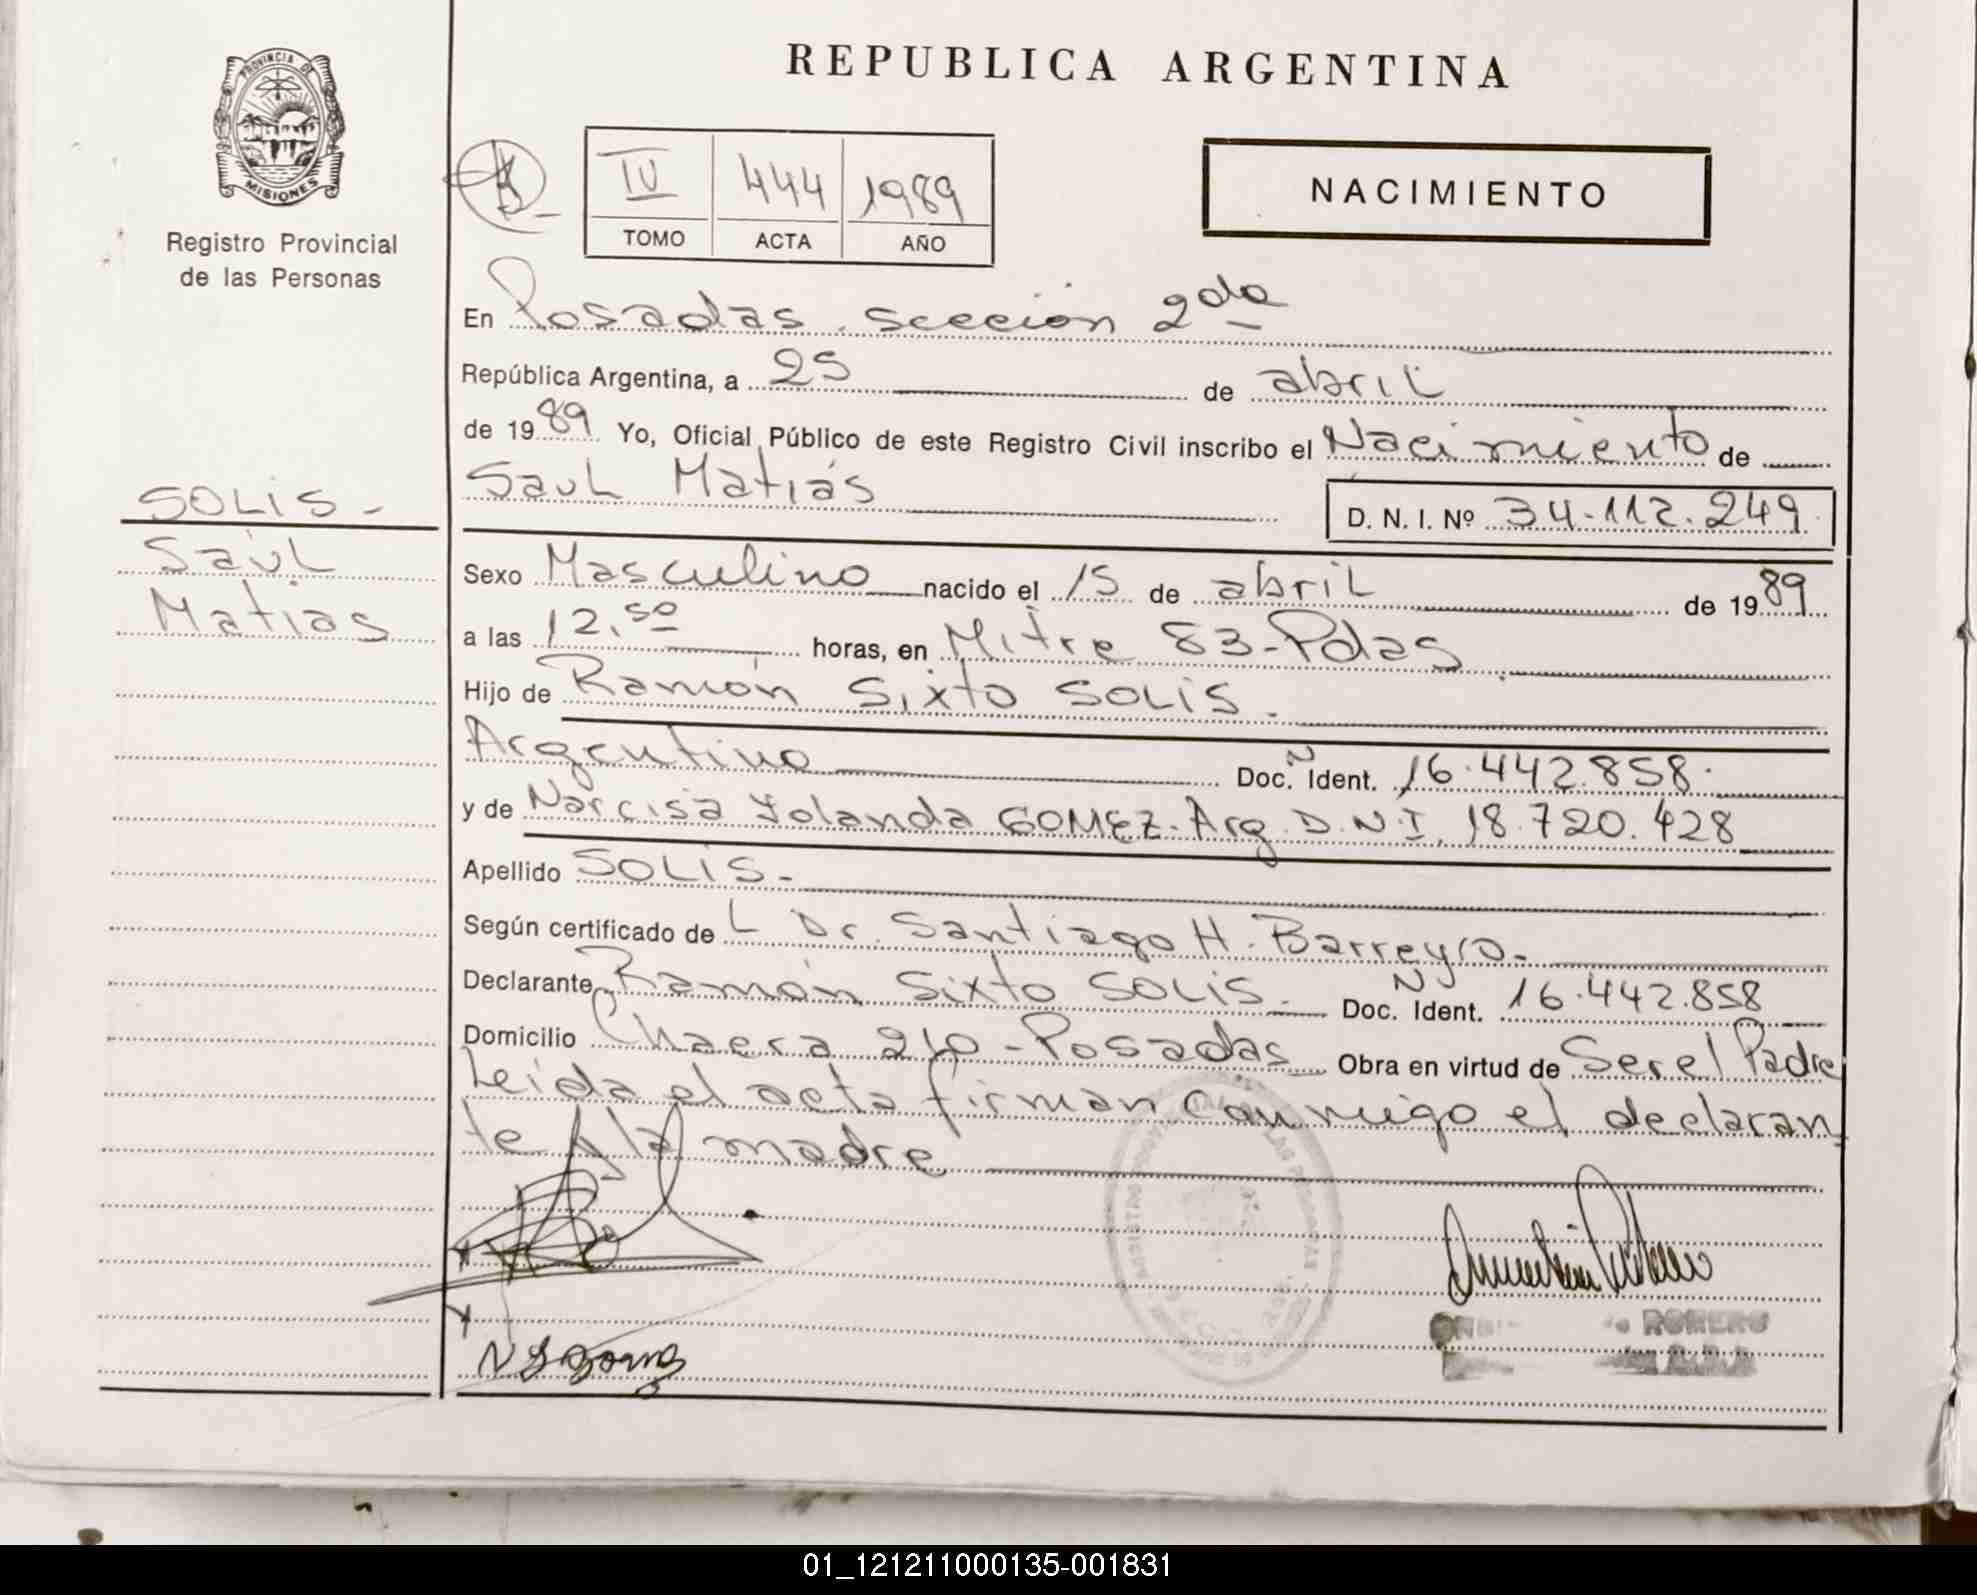 REPUBLICA ARGENTINA
PROVINCIA DE
MISIONES
Registro Provincial
de las Personas
IV 444 1989
TOMO ACTA AÑO
NACIMIENTO
En Posadas. sección 2da
República Argentina, a 25 de abril
de 1989 Yo, Oficial Público de este Registro Civil inscribo el Nacimiento de
Saul Matiás
D. N. I. Nº 34.112.249
SOLIS-
Saúl
Matias
Sexo Masculino nacido el 15 de abril de 1989
a las 12,50 horas, en Mitre 83-Pdas
Hijo de Ramón Sixto SOLIS.
Argentino Doc. N Ident. 16.442.858.
y de Narcisa Yolanda GOMEZ. Arg. D.N.I. 18.720.428
Apellido SOLIS.-
Según certificado de L Dr. Santiago H. Barreyro.-
Declarante Ramón Sixto SOLIS.- Doc. N Ident. 16.442.858
Domicilio Chacra 210-Posadas Obra en virtud de Ser el Padre
Leída el acta firman conmigo el declaran
te y la madre
N Y Gomez
ROMERO
01_121211000135-001831